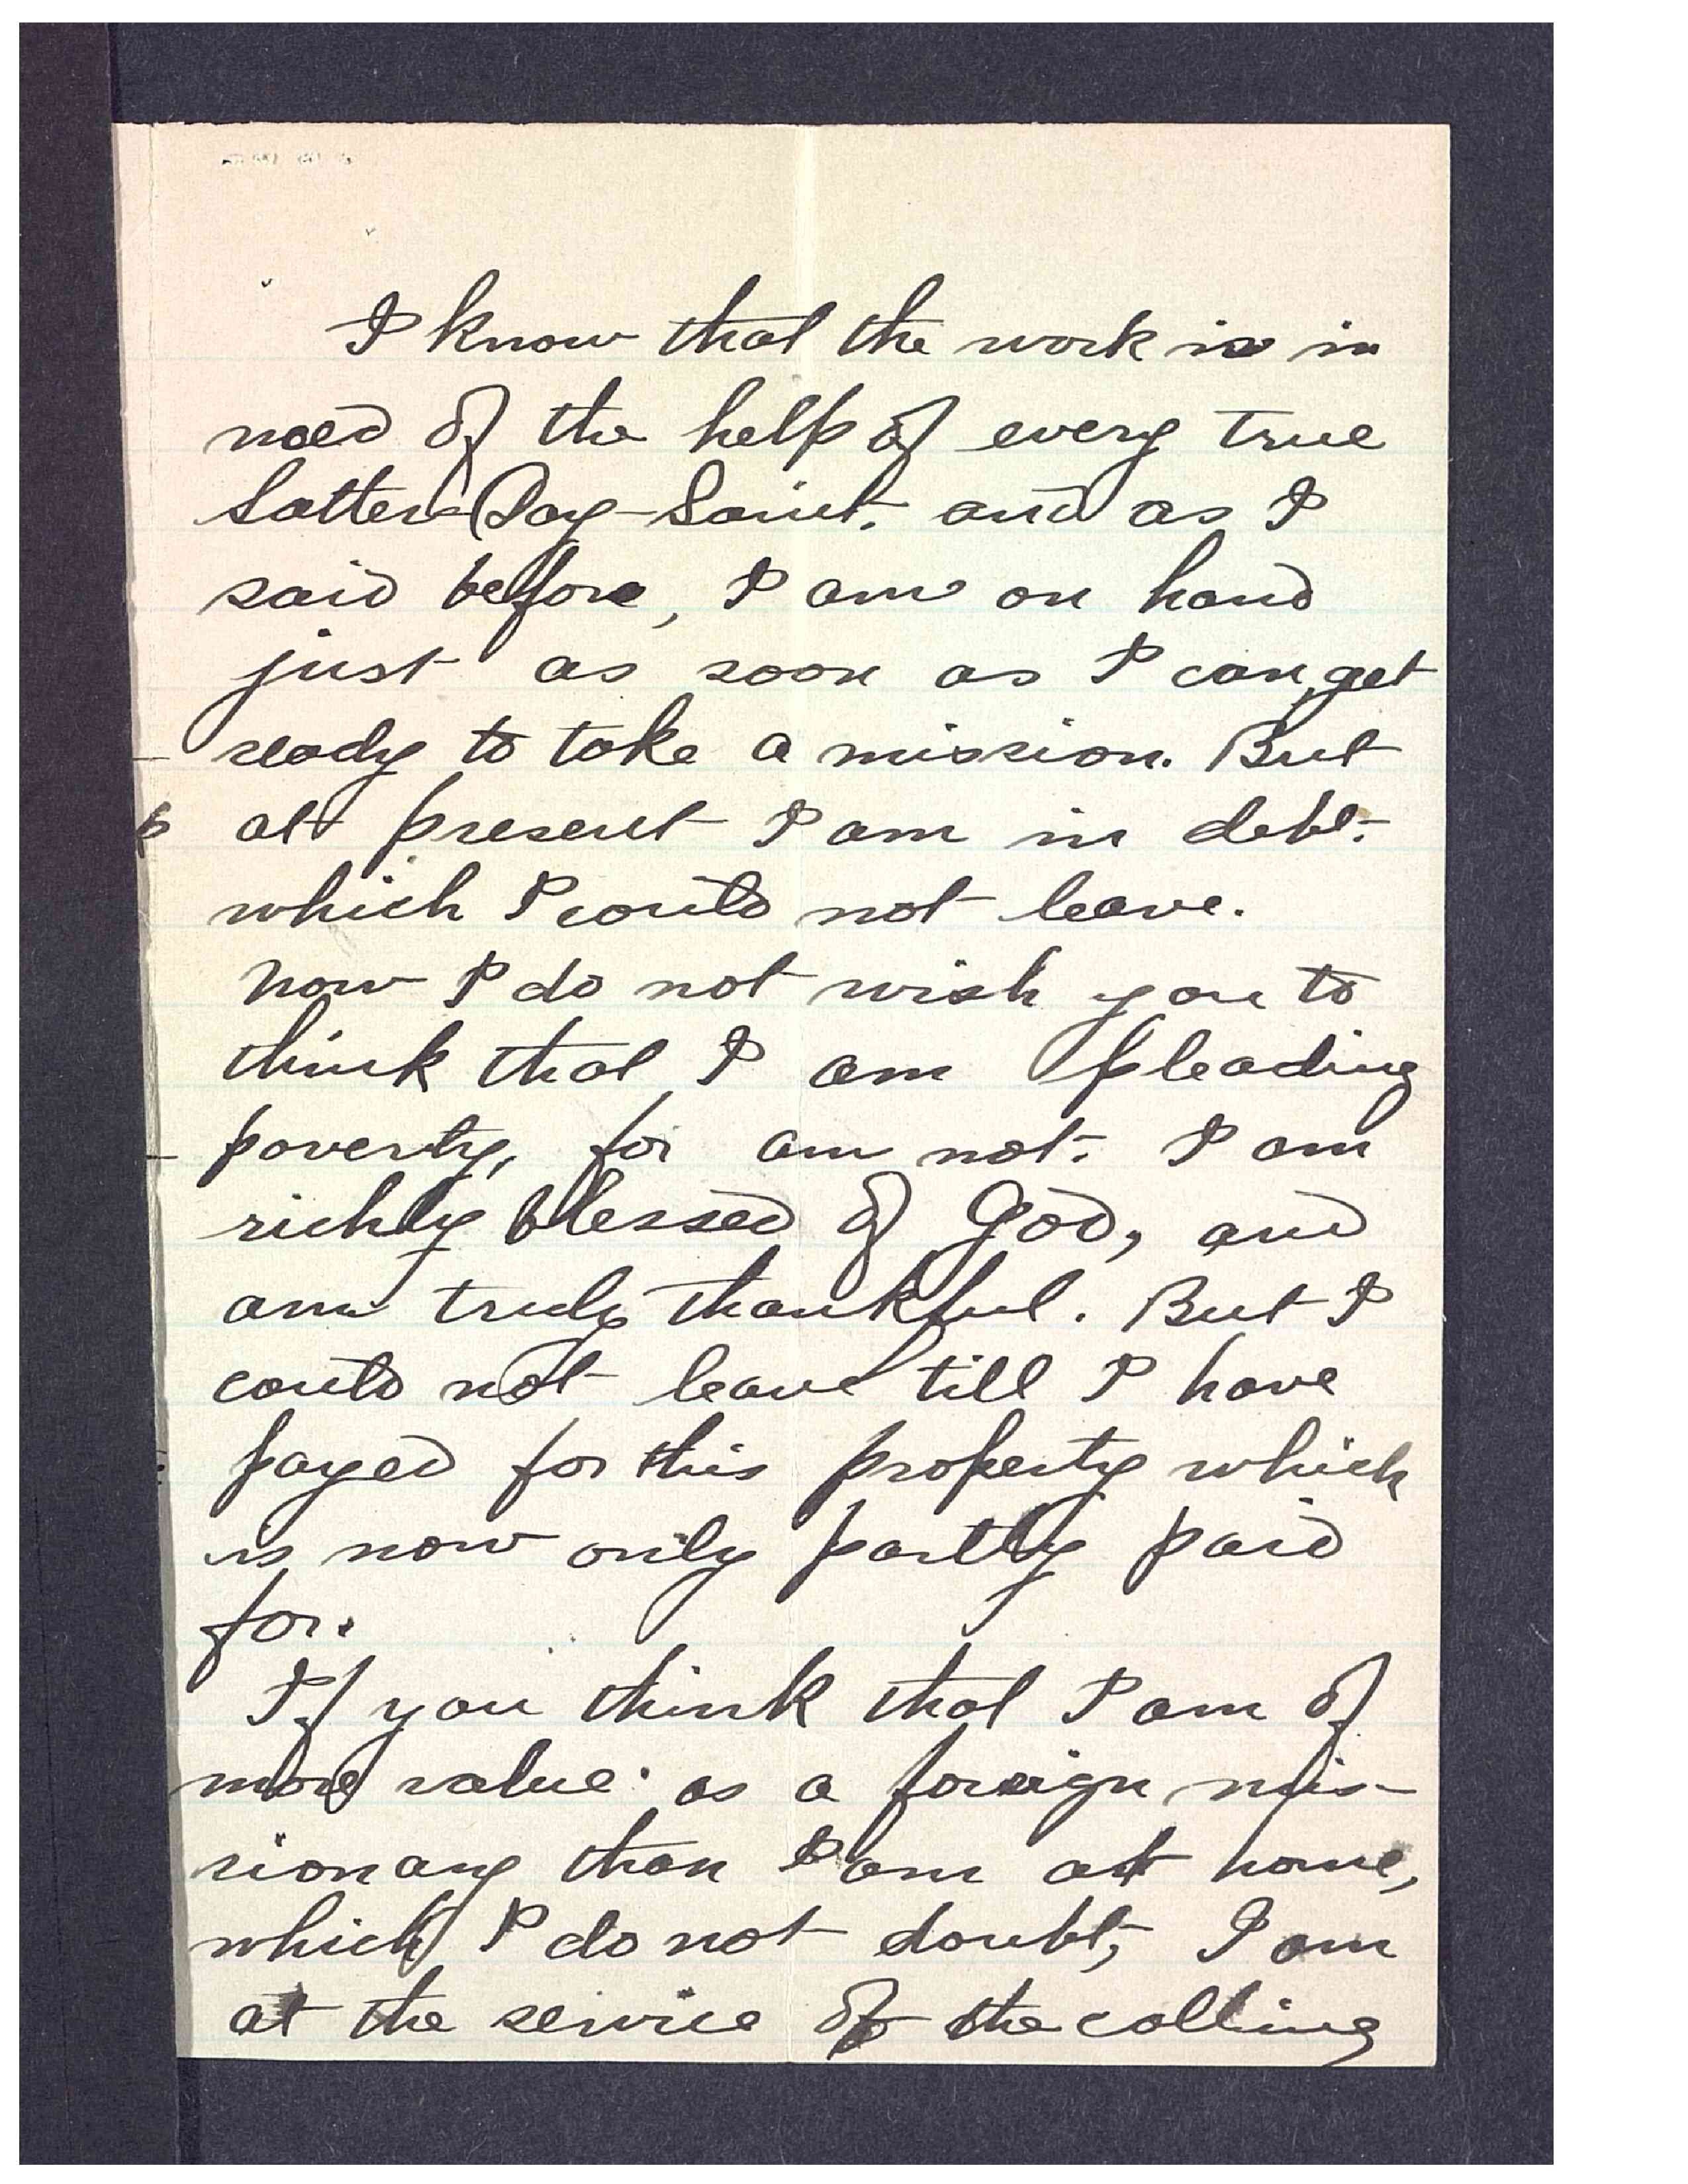 I know that the work is in
need of the help of every true
Latter-Day-Saint. and as I
said before, I am on hand
just as soon as I can get
ready to take a mission. But
at present I am in debt.
which I could not leave.
Now I do not wish you to
think that I am pleading
poverty, for am not. I am
richly blessed of God, and
am truly thankful. But I
could not leave till I have
payed for this property which
is now only partly paid
for.
If you think that I am of
more value as a foreign mis-
sionary than I am at home,
which I do not doubt, I am
at the service of the calling